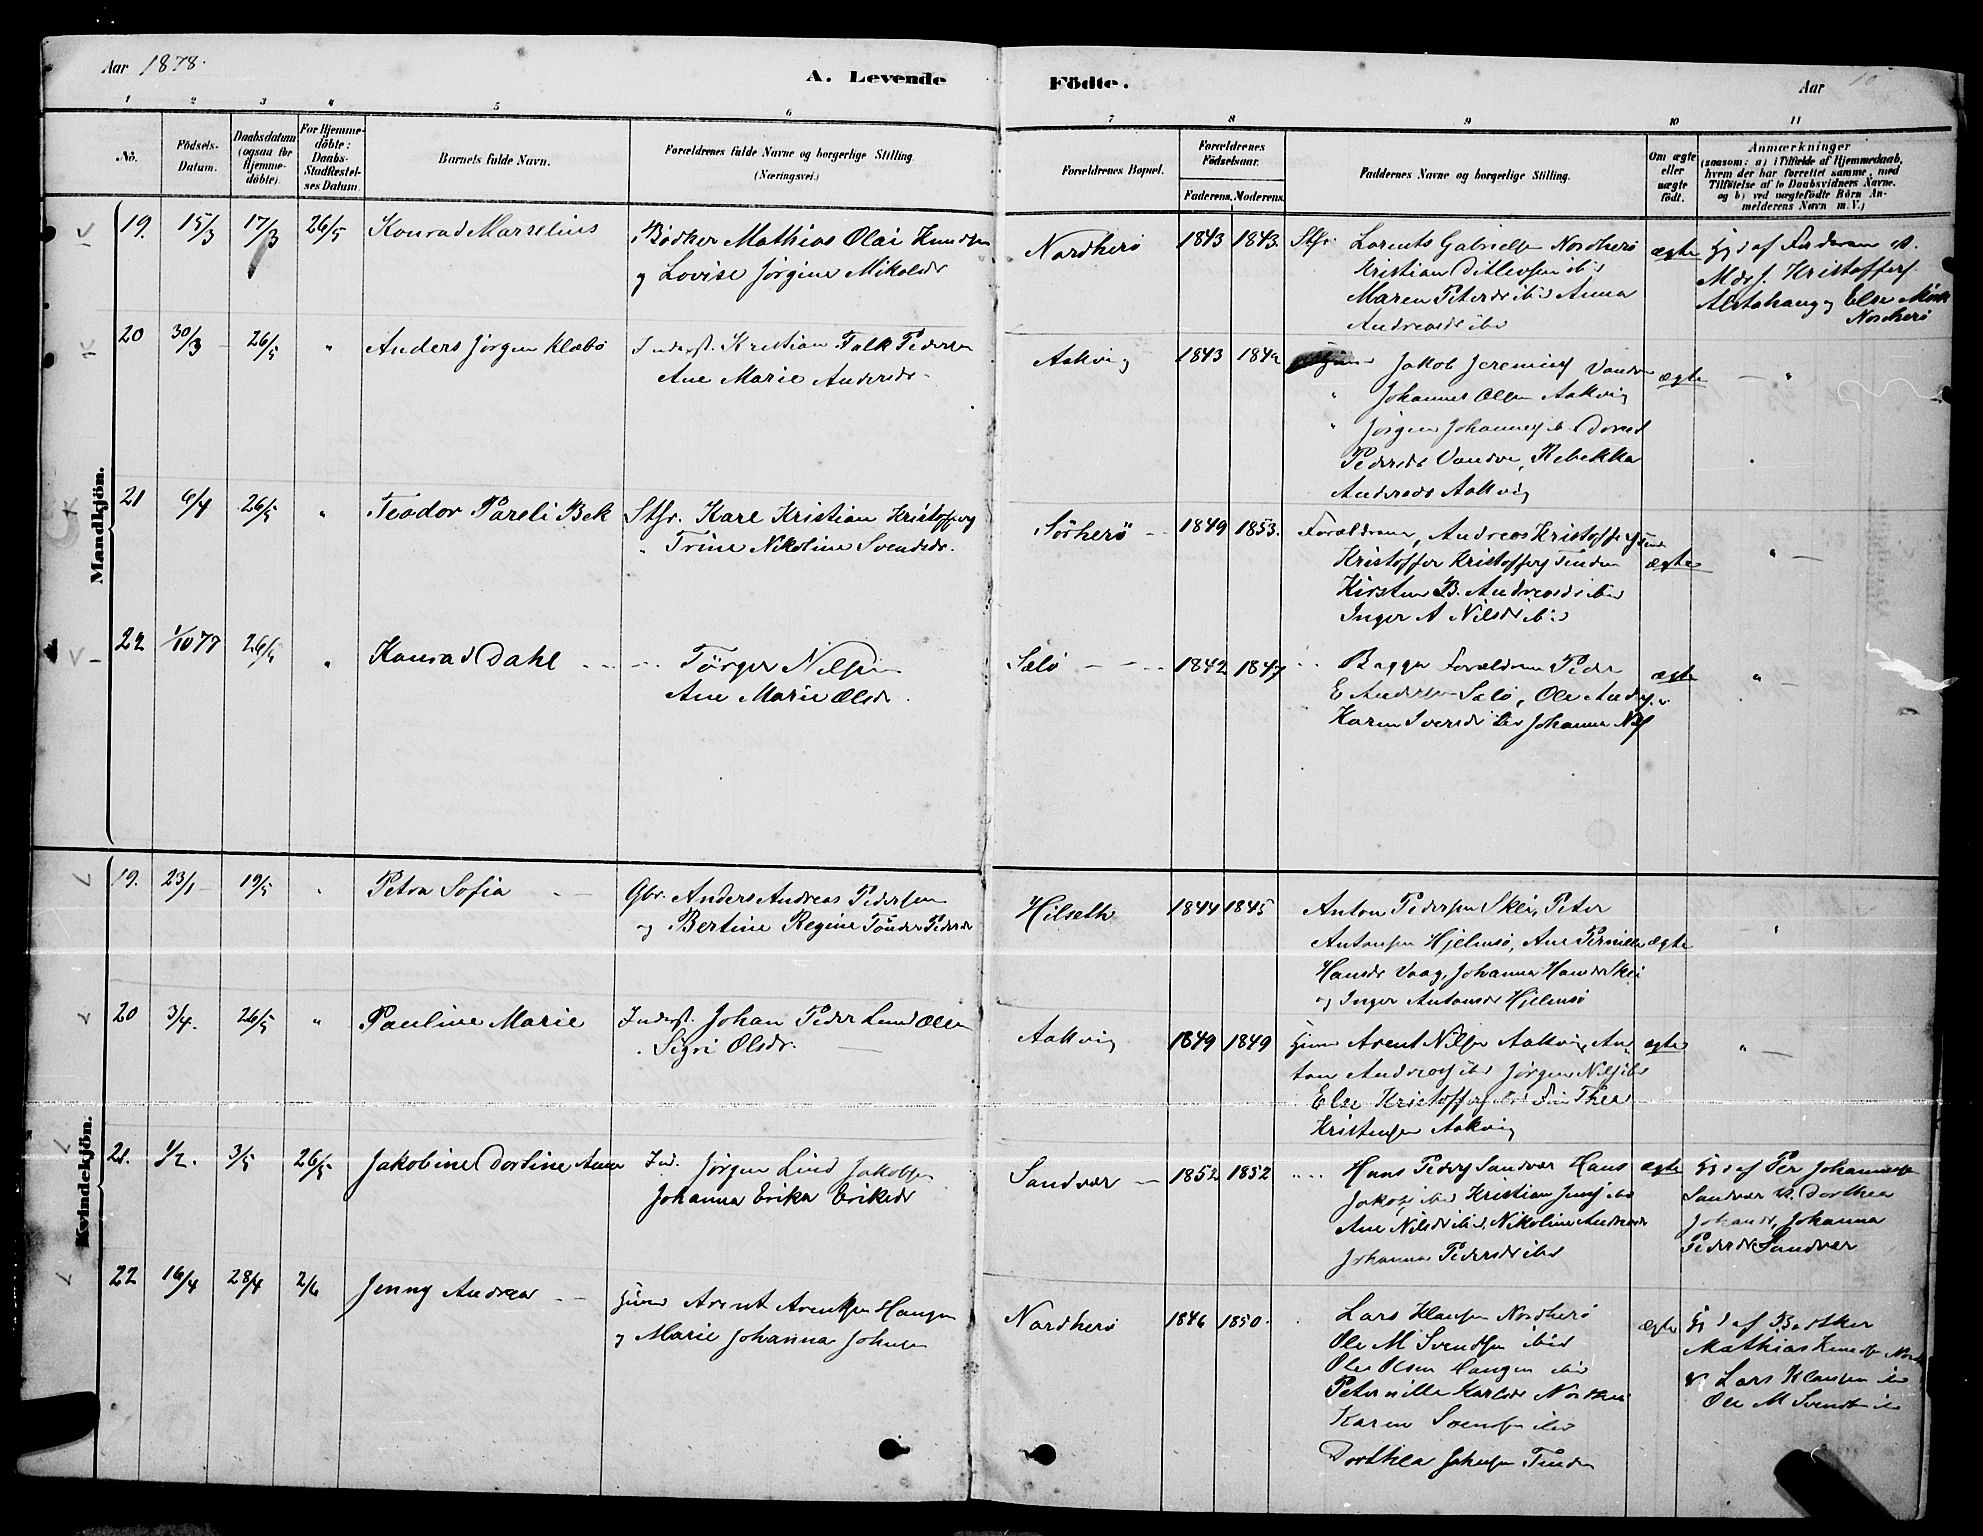 Aar 1878.
A. Levende Födte.
Aar
10
1 2 3 4 5 6 7 8 9 10 11
No.
Födsels-
Datum.
Daabsdatum
(ogsaa for
Hjemme-
döbte).
For Hjemme-
döbte:
Daabs-
Stadfæstel-
ses Datum.
Barnets fulde Navn.
Forældrenes fulde Navne og borgerlige Stilling.
(Næringsvei.)
Forældrenes Bopæl.
Forældrenes
Födselsaar.
Faderens. Moderens.
Faddernes Navne og borgerlige Stilling.
Om ægte
eller
uægte
født.
Anmærkninger
(saasom: a) i Tilfælde af Hjemmedaab,
hvem der har forrettet samme, med
Tilföielse af to Daabsvidners Navne.
og b) ved uægtefödte Börn An-
melderens Navn m. V.)
Mandkjön.
19. 15/3 17/3 26/5 Konrad Marselius
Bødker Mathias Olai Knudsen
og Lovise Jørgine Mikalsdr
Nordherö 1843 1843.
Stfr. Lorents Gabrielsen Nordherö
Kristian Ditlevsen ibid
Maren Petersdr ibid Anna
Andreasdr ibd
ægte
Hjd af Faderen
Kristoffers
Alstahaug og Else
Nordherö
20 30/3 26/5 " Anders Jørgen Klæbo
Inderst. Kristian Falk Pedersen
Ane Marie Andersdr.
Aakvig 1843
Jakob Jeremias Vandve
" Johannes Olsen Aakvig
" Jørgen Johannes
Pedersdr Vandve, Rebekka
Andersdr Aakvig
ægte "
21 6/4 26/5 " Teodor Pareli Bek
Stfr. Karl Kristian Kristoffers
" Trine Nikoline Svendsdr.
Sørherö 1849 1853.
Forældrene, Andreas Kristoffers
Kristoffer Kristoffers Tenden
Kirsten B. Andreasdr ibid
Inger A Nilsdr ibid
ægte "
22 1/10 77 26/5 " Konrad Dahl
Tørger Nilsen
Ane Marie Olsdr.
Sælö 1842 1847
Forældrene Peder
E Andersen Sælö, Ole Anders
Karen Iversdr ibd Johanna Nils
ægte "
Kvindekjön.
19. 23/1 19/5 " Petra Sofia
Gbr. Anders Andreas Pedersen
og Bertine Regine Tönder Pedersdr
Hilseth 1844 1845
Anton Pedersen Skei, Peter
Antonsen Hjelmsö, Ane Pernille
Hansdr Vaag, Johanna Hansdr Skei
og Inger Antonsdr Hjelmsö
ægte "
20 3/4. 26/5 " Pauline Marie
Inderst. Johan Peder Lund Olsen
Sigri Olsdr.
Aakvig 1849 1849
Arent Nilsen Aakvig, An
ton Andreas ibd Jørgen Nils ibd
Else Kristoffers ibd Thea
Kristensen Aakvig
ægte "
21. 1/2. 3/5 26/5 Jakobine Dortine Anna
Ind. Jørgen Lind Jakobsen
Johanna Erika Eriksdr
Sandvær 1852 1852
Hans Peders Sandvær Hans
Jakobs ibid Kristian Jens ibd
Ane Nilsdr ibid Nikoline Andreasdr
Johanna Pedersdr ibd
ægte
Hjd af Per Johannesen
Sandvær v. Dorthea
Johansdr, Johanna
Pedersdr Sandvær
22 16/4 28/4 2/6 Jenny Andrea
Arent Arentsen Haugen
og Marie Johanna Johnsen
Nordherö 1846 1850.
Lars Klausen Nordherö
Ole M Svendsen ibid
Ole Olsen Haugen ibd
Peternille Karlsdr Nordherö
Karen Svensen ibd
Dorthea Johnsen Tenden
ægte
Hjd af Bødker
Mathias Knudsen
v Lars Klausen ibd
Ole M Svends ibd